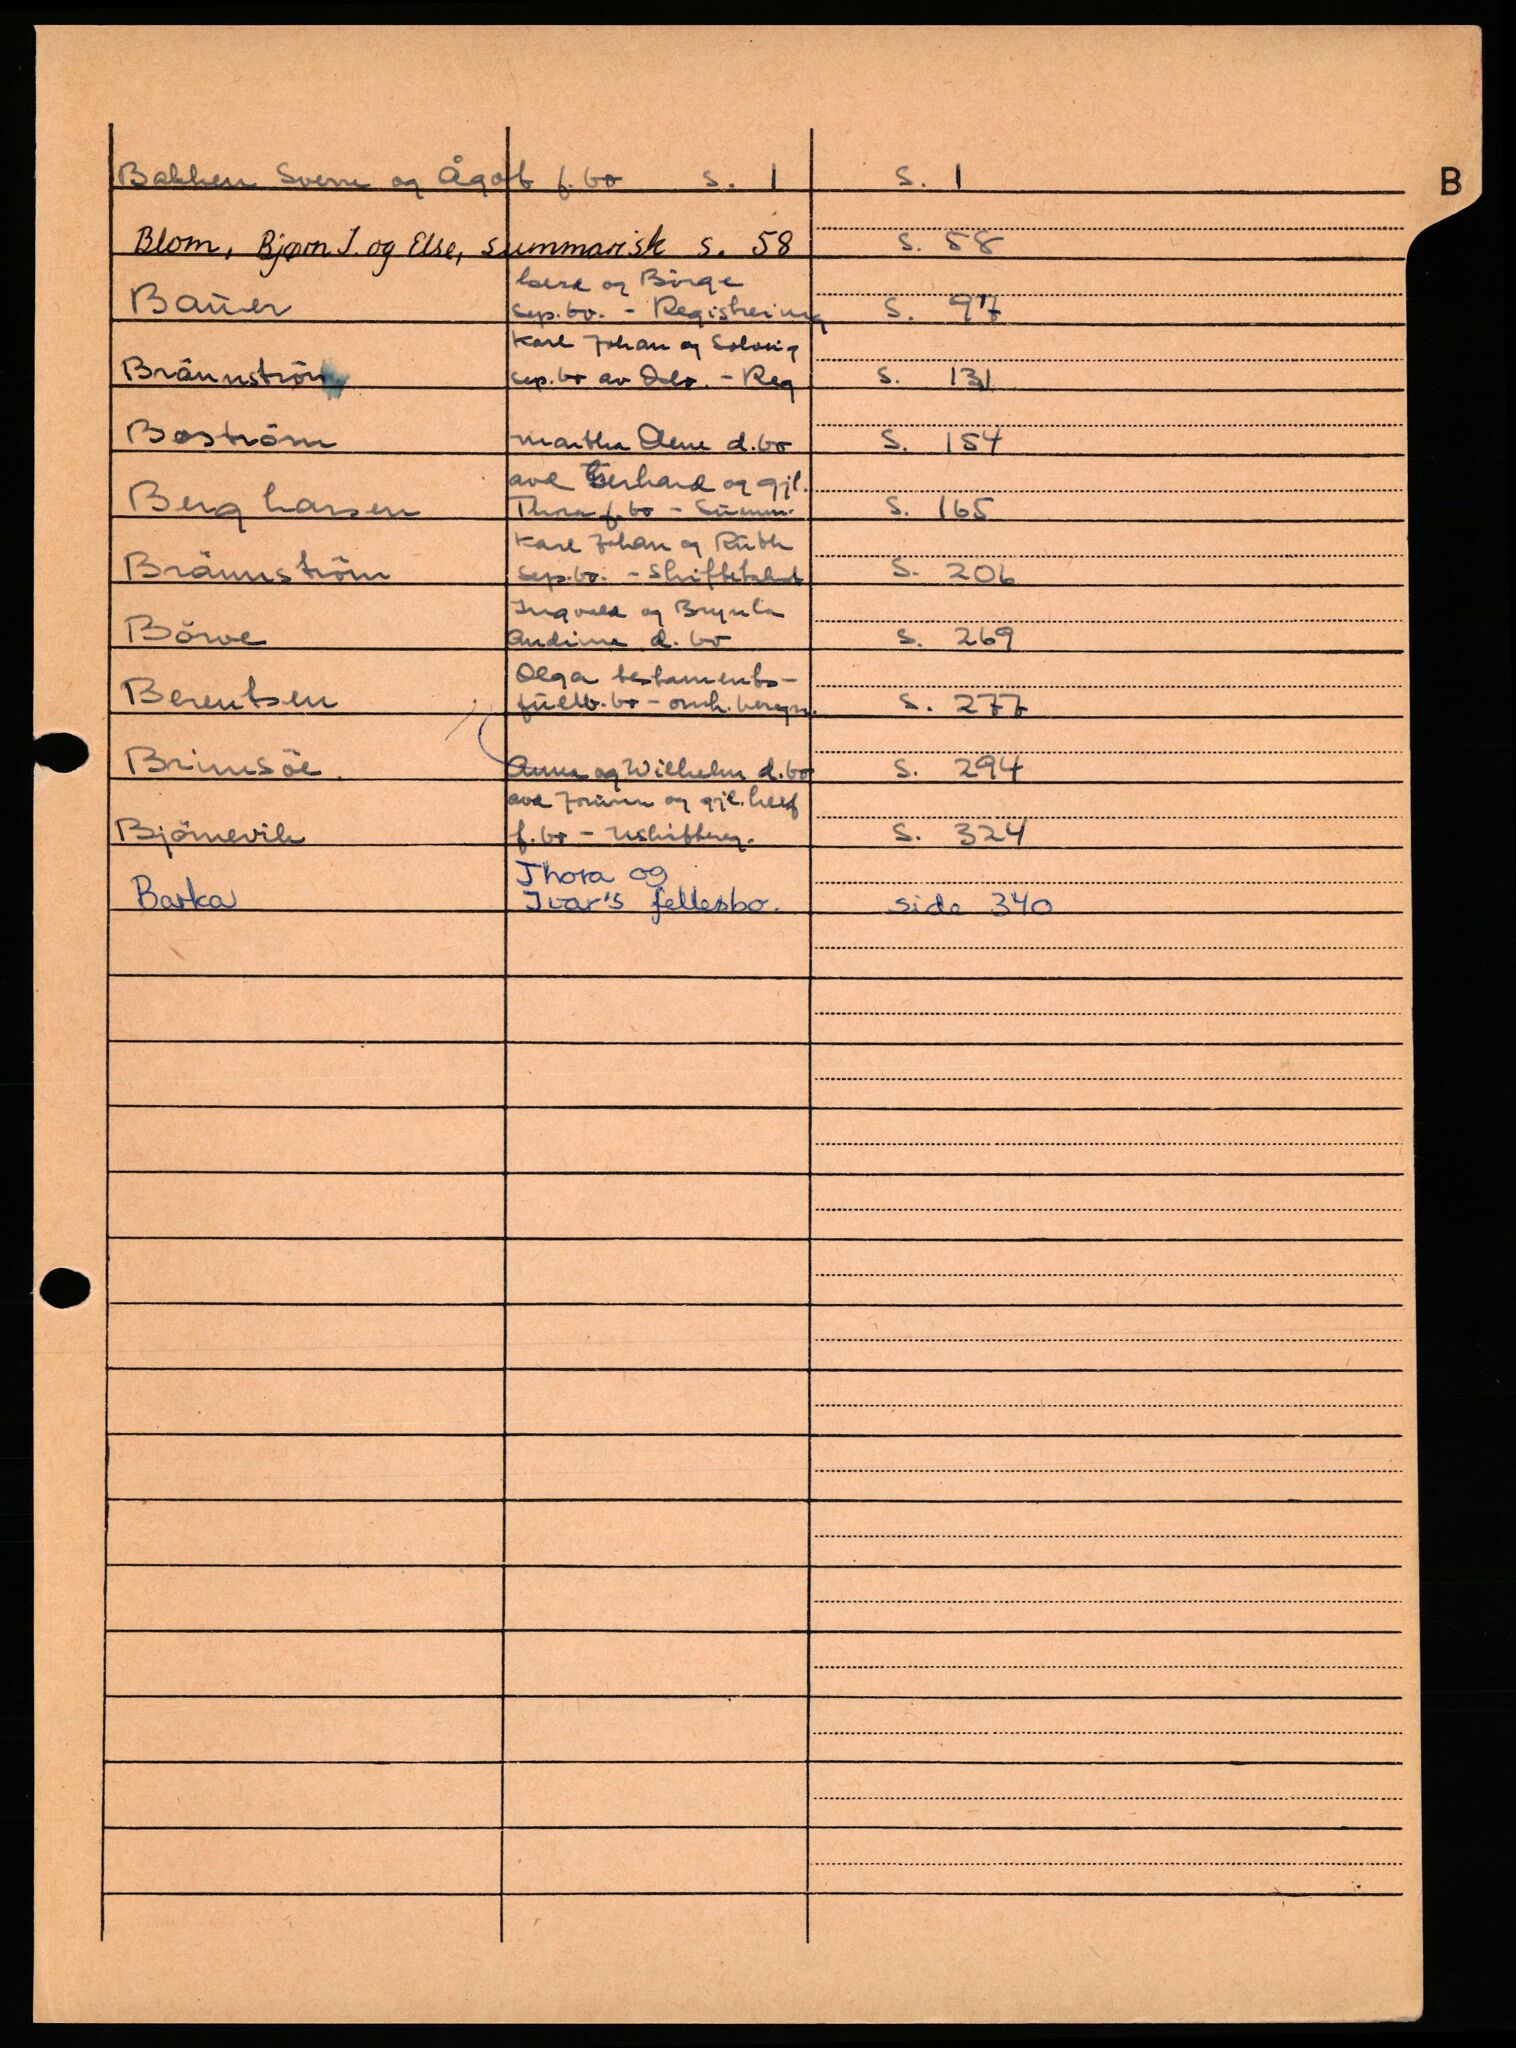 B
Bakken Sverre og Ågot f. bo s. 1 s. 1
Blom, Bjørn J. og Else, summarisk s. 58 s. 58
Gerd og Börge
Bauer sep.bo. - Registrering s. 97
Karl Johan og Solveig
Brännström sep.bo av Oslo. - Reg s. 131
Boström Martha Olene d.bo s. 154
avd Gerhard og gjl.
Berg Larsen Thora f.bo - Summ. s. 165
Karl Johan og Ruth
Brännström sep.bo. - Skifteslutt s. 206
Ingvald og
Börve Andine d. bo s. 269
Olga testaments-
Berentsen fullb. bo - omk. beregn. s. 277
Brimsöe Anna og Wilhelm d.bo s. 294
avd Jorunn og gjl. Leif
Björnevik f. bo - Uskiftereg. s. 324
Thora og
Barka Ivar's fellesbo. side 340